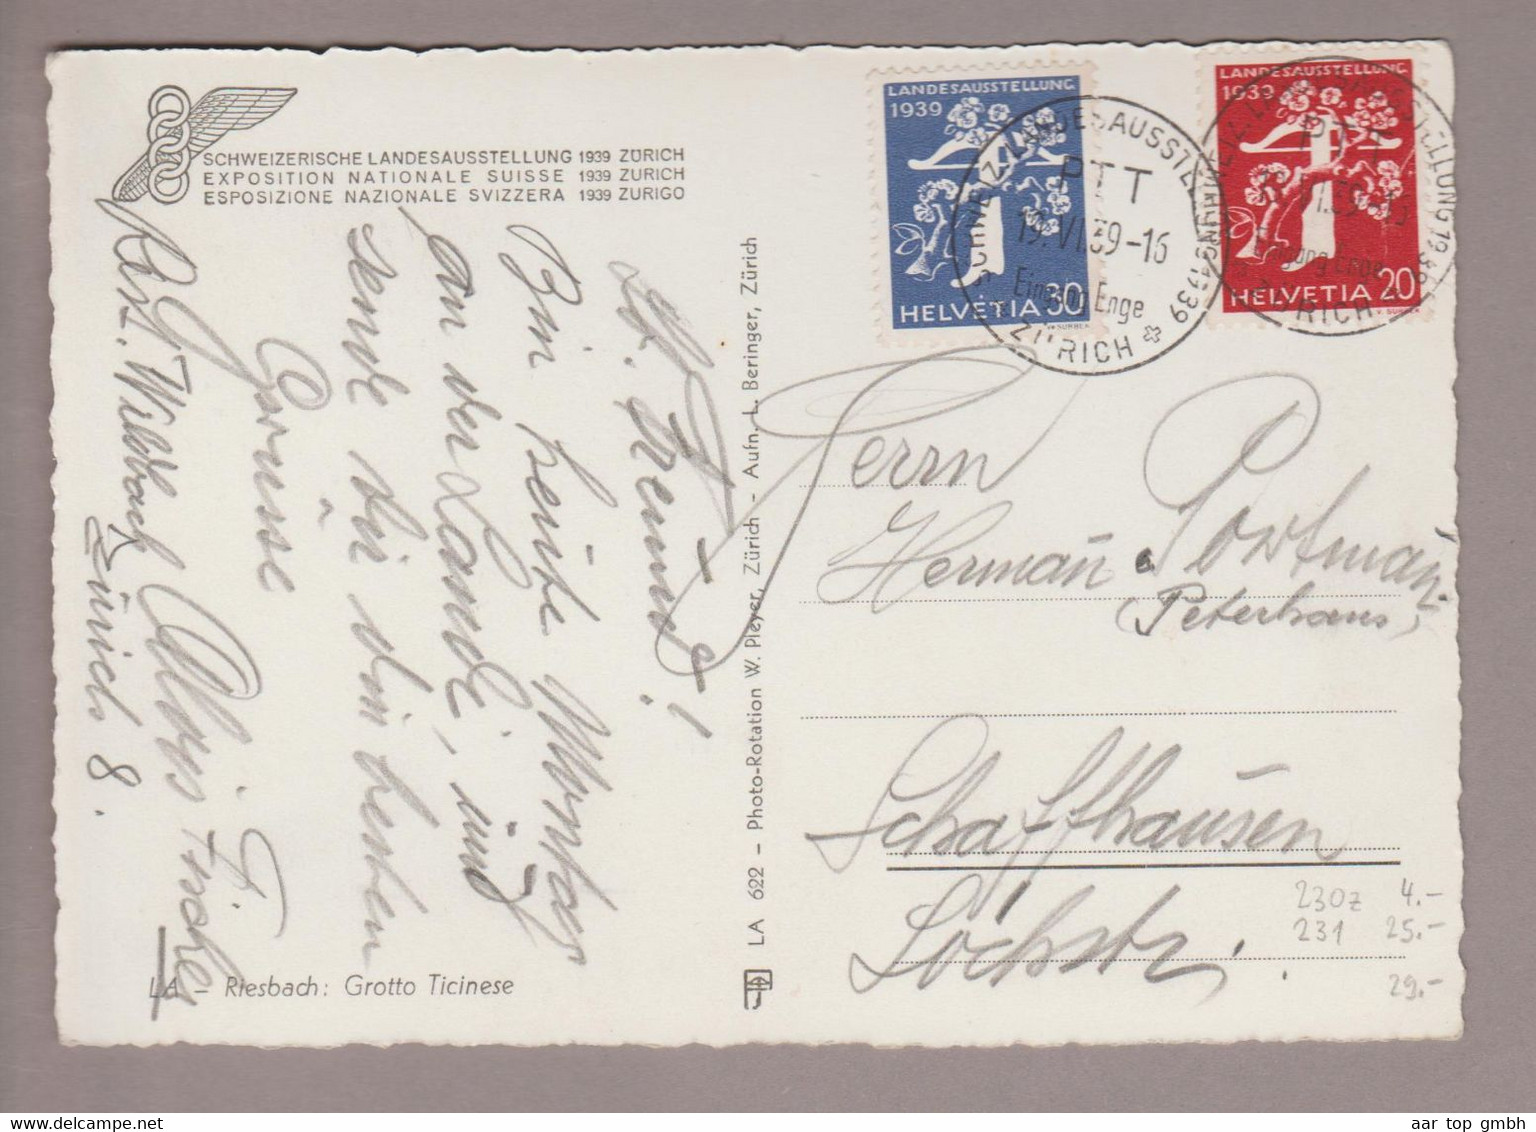 SCHWEIZERISCHE LANDESAUSSTELLUNG 1939 ZÜRICH
EXPOSITION NATIONALE SUISSE 1939 ZURICH
ESPOSIZIONE NAZIONALE SVIZZERA 1939 ZURIGO
LANDESAUSSTELLUNG
1939
HELVETIA 30
LANDESAUSSTELLUNG
1939
HELVETIA 20
SCHWEIZ. LANDESAUSSTELLUNG 1939
PTT
19.VI.39-16
Eingang Enge
ZÜRICH
PTT
Eingang Enge
ZÜRICH
Bin heute Montag
an der Landi, und
sende dir die besten
Grüsse
Alois Fischer
Rest. Wildbach
Zürich 8.
LA 622 - Photo-Rotation W. Pleyer, Zürich - Aufn. L. Beringer, Zürich
Herrn
Herman Portman
(Peterhans)
Schaffhausen
230z 4.-
231 25.-
29.-
LA - Riesbach: Grotto Ticinese
aar top gmbh